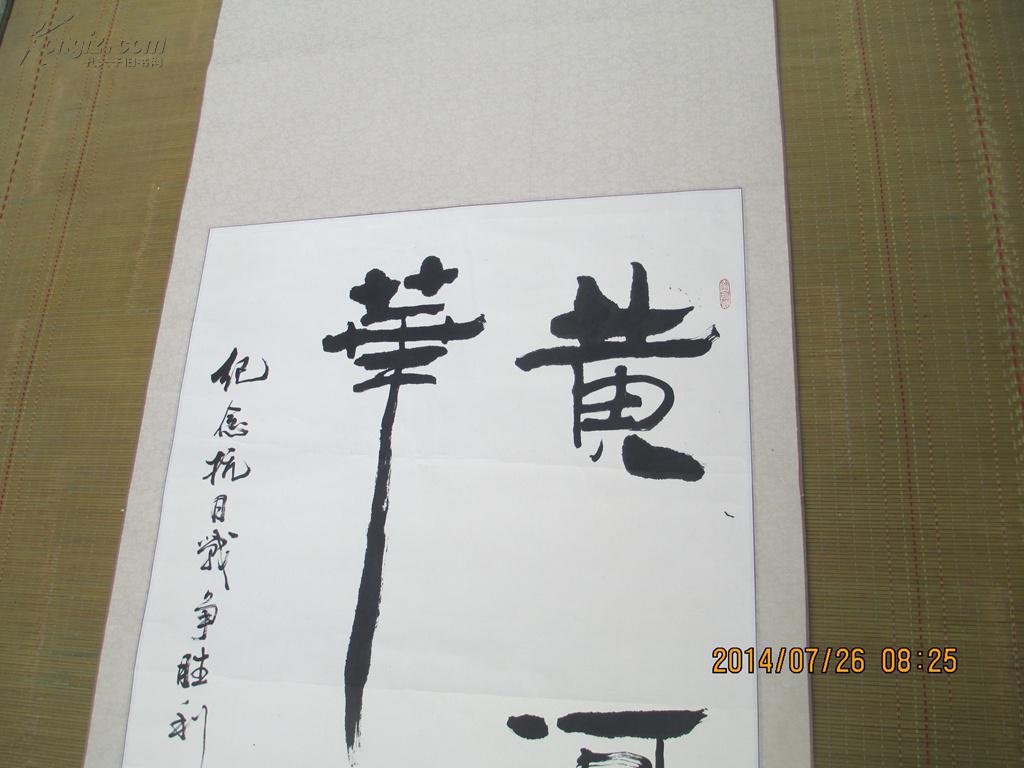 黄
華
纪念抗日戰争胜利
2014/07/26 08:25
Kongfz.com
孔夫子旧书网